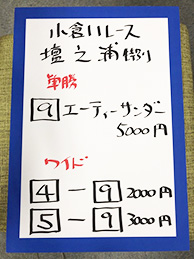 小倉11レース
壇之浦特別
単勝
9 エーティーサンダー
5000円
ワイド
4 − 9 2000円
5 − 9 3000円